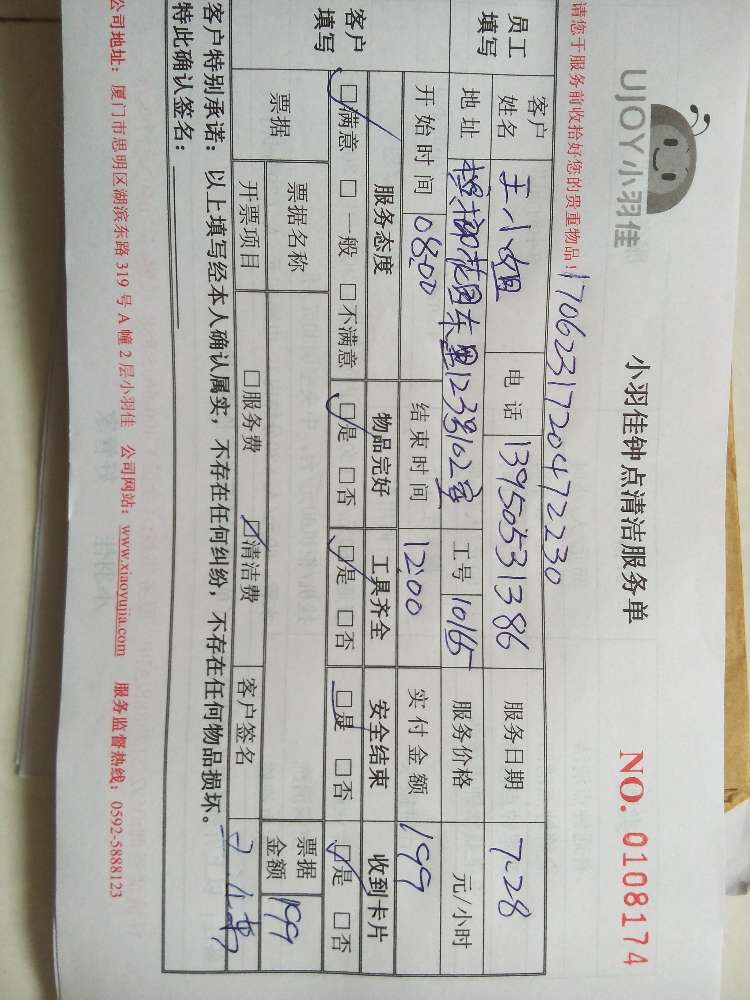 UJOY小羽佳
小羽佳钟点清洁服务单
NO. 0108174
请您于服务前收拾好您的贵重物品！
170623172047 2230
员工填写
客户姓名 王小姐 电话 13950531386 服务日期 7-28
地址 槟榔花园东里123号102室 工号 10165 服务价格 元/小时
开始时间 08:00 结束时间 12:00 实付金额 199
客户填写
服务态度 物品完好 工具齐全 安全结束 收到卡片
☑满意 □一般 □不满意 ☑是 □否 ☑是 □否 ☑是 □否 ☑是 □否
票据 票据名称 票据金额 199
开票项目 □服务费 ☑清洁费 客户签名
客户特别承诺：以上填写经本人确认属实，不存在任何纠纷，不存在任何物品损坏。
特此确认签名：
公司地址：厦门市思明区湖滨东路 319 号 A 幢 2 层小羽佳 公司网站：www.xiaoyujia.com 服务监督热线：0592-5888123